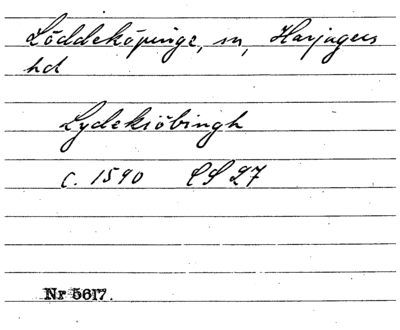 Löddeköpinge, sn, Harjagers
hd
Lydekiöbingh
c. 1590 LS 27
Nr 5617.